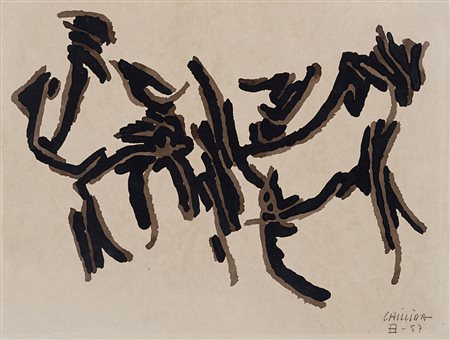 CHILLIDA
- 57